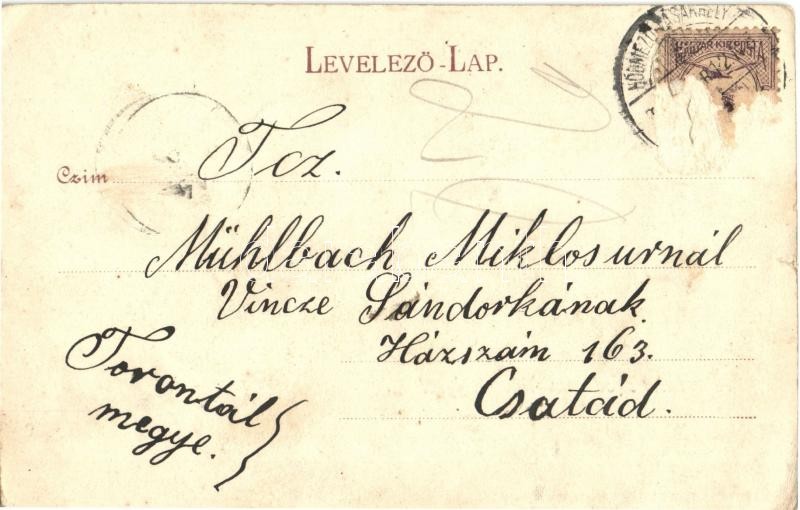 LEVELEZÖ-LAP.
HÓDMEZŐVÁSÁRHELY
MAGYAR KIR. POSTA
Czim
Tcz.
Mühlbach Miklosurnál
Vincze Sándorkának
Házszám 163.
Csatád.
Torontál
megye.